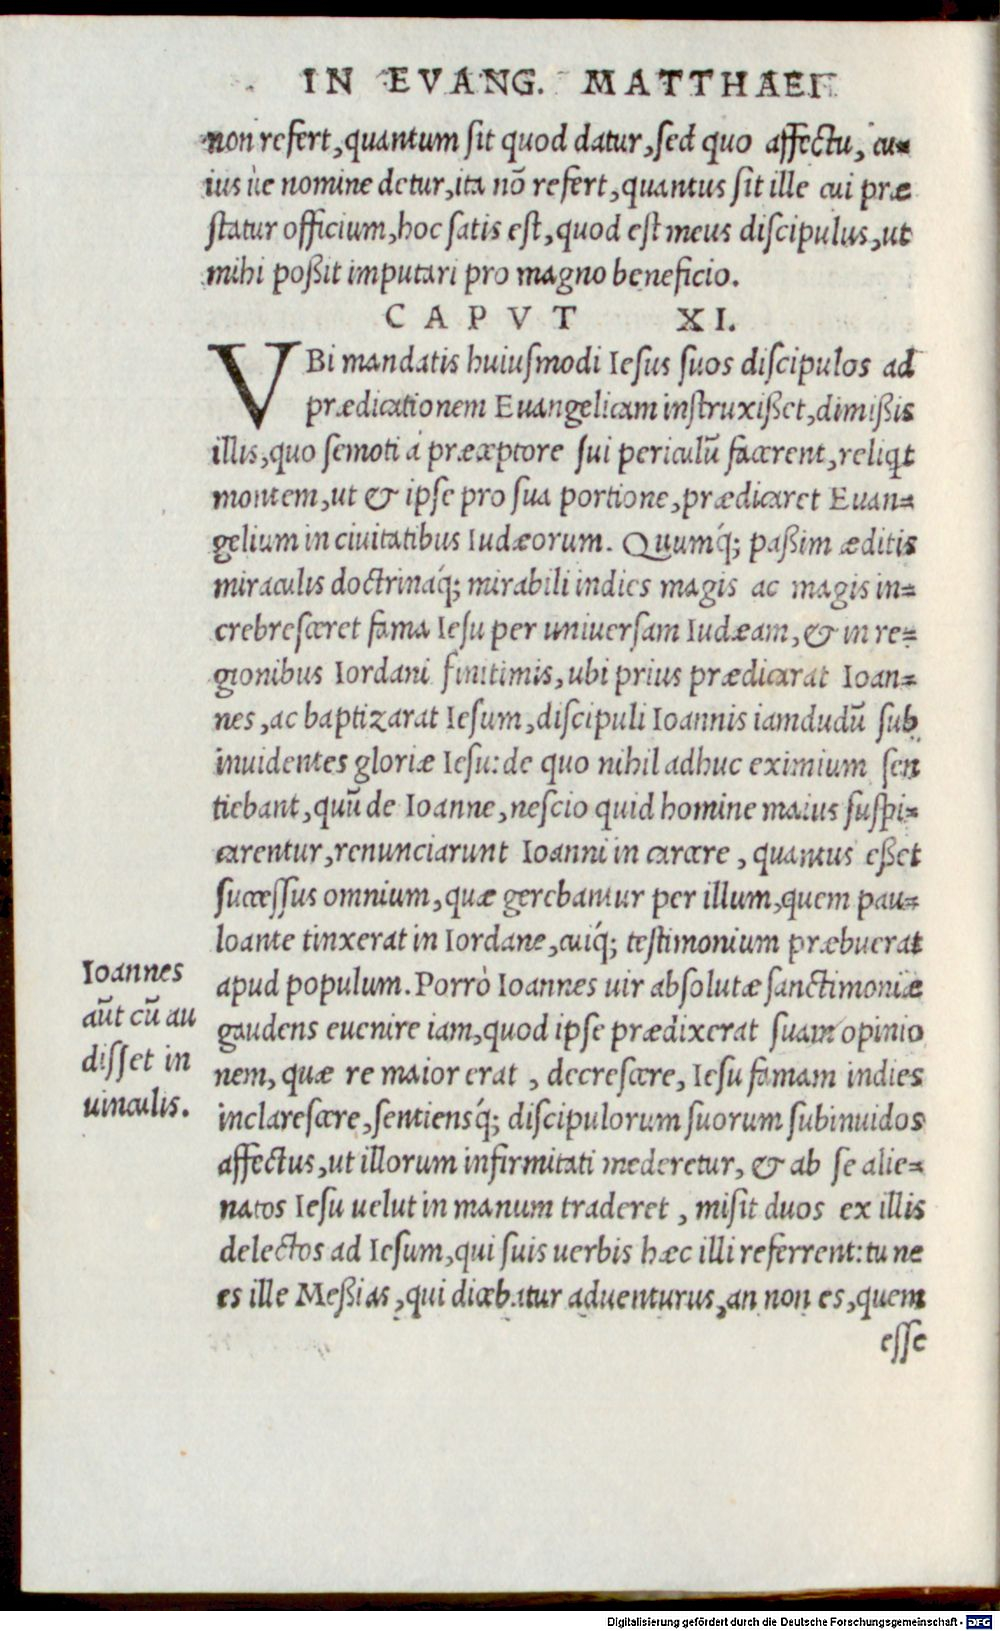 IN EVANG. MATTHAEI
non refert, quantum sit quod datur, sed quo affectu, cu-
ius ùe nomine detur, ita nō refert, quantus sit ille cui præ
statur officium, hoc satis est, quod est meus discipulus, ut
mihi poßit imputari pro magno beneficio.
CAPVT XI.
VBi mandatis huiusmodi Iesus suos discipulos ad
prædicationem Euangelicam instruxißet, dimißis
illis, quo semoti à præceptore sui periculū facerent, reliqt
montem, ut & ipse pro sua portione, prædicaret Euan-
gelium in ciuitatibus Iudæorum. Quumq́; paßim æditis
miraculis doctrinaq́; mirabili indies magis ac magis in-
crebresceret fama Iesu per uniuersam Iudæam, & in re-
gionibus Iordani finitimis, ubi prius prædicarat Ioan-
nes, ac baptizarat Iesum, discipuli Ioannis iamdudū sub
inuidentes gloriæ Iesu: de quo nihil adhuc eximium sen
tiebant, quū de Ioanne, nescio quid homine maius suspi-
carentur, renunciarunt Ioanni in carcere, quantus eßet
successus omnium, quæ gerebantur per illum, quem pau-
loante tinxerat in Iordane, cuiq́; testimonium præbuerat
apud populum. Porrò Ioannes uir absolutæ sanctimoniæ
gaudens euenire iam, quod ipse prædixerat suam opinio
nem, quæ re maior erat, decrescere, Iesu famam indies
inclarescere, sentiensq́; discipulorum suorum subinuidos
affectus, ut illorum infirmitati mederetur, & ab se alie-
natos Iesu uelut in manum traderet, misit duos ex illis
delectos ad Iesum, qui suis uerbis hæc illi referrent: tu ne
es ille Meßias, qui dicebatur aduenturus, an non es, quem
esse
Ioannes
aūt cū au
disset in
uinculis.
Digitalisierung gefördert durch die Deutsche Forschungsgemeinschaft - DFG